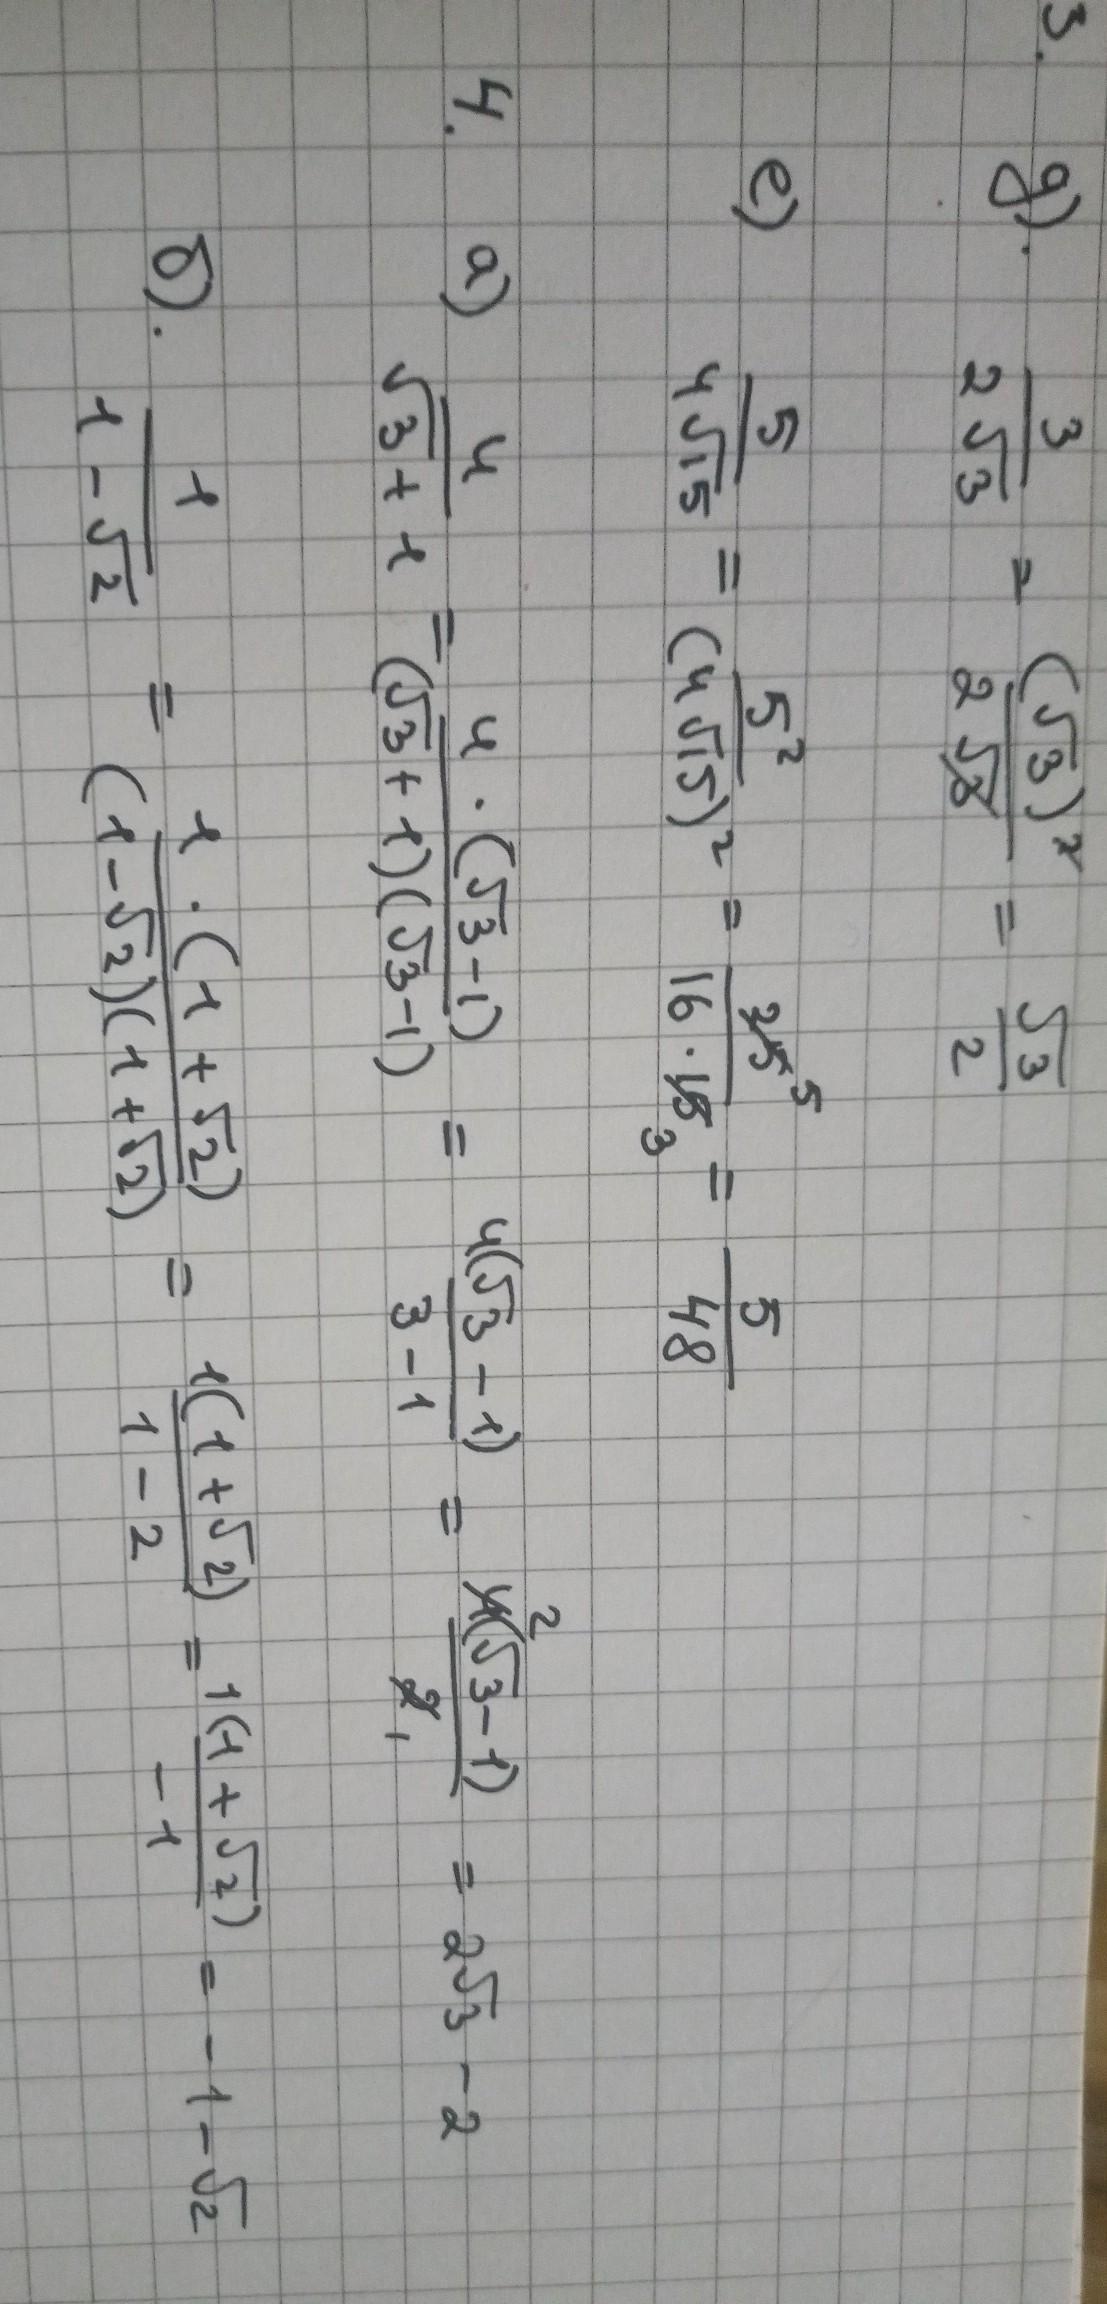 3. д). 3/(2√3) = (√3)²/(2√3) = √3/2
е) 5/(4√15) = 5²/(4√15)² = 25 5/(16·15 3) = 5/48
4. а) 4/(√3+1) = 4·(√3-1)/(√3+1)(√3-1) = 4(√3-1)/(3-1) = 4 2(√3-1)/2 1 = 2√3-2
б). 1/(1-√2) = 1·(1+√2)/(1-√2)(1+√2) = 1(1+√2)/(1-2) = 1(1+√2)/-1 = -1-√2